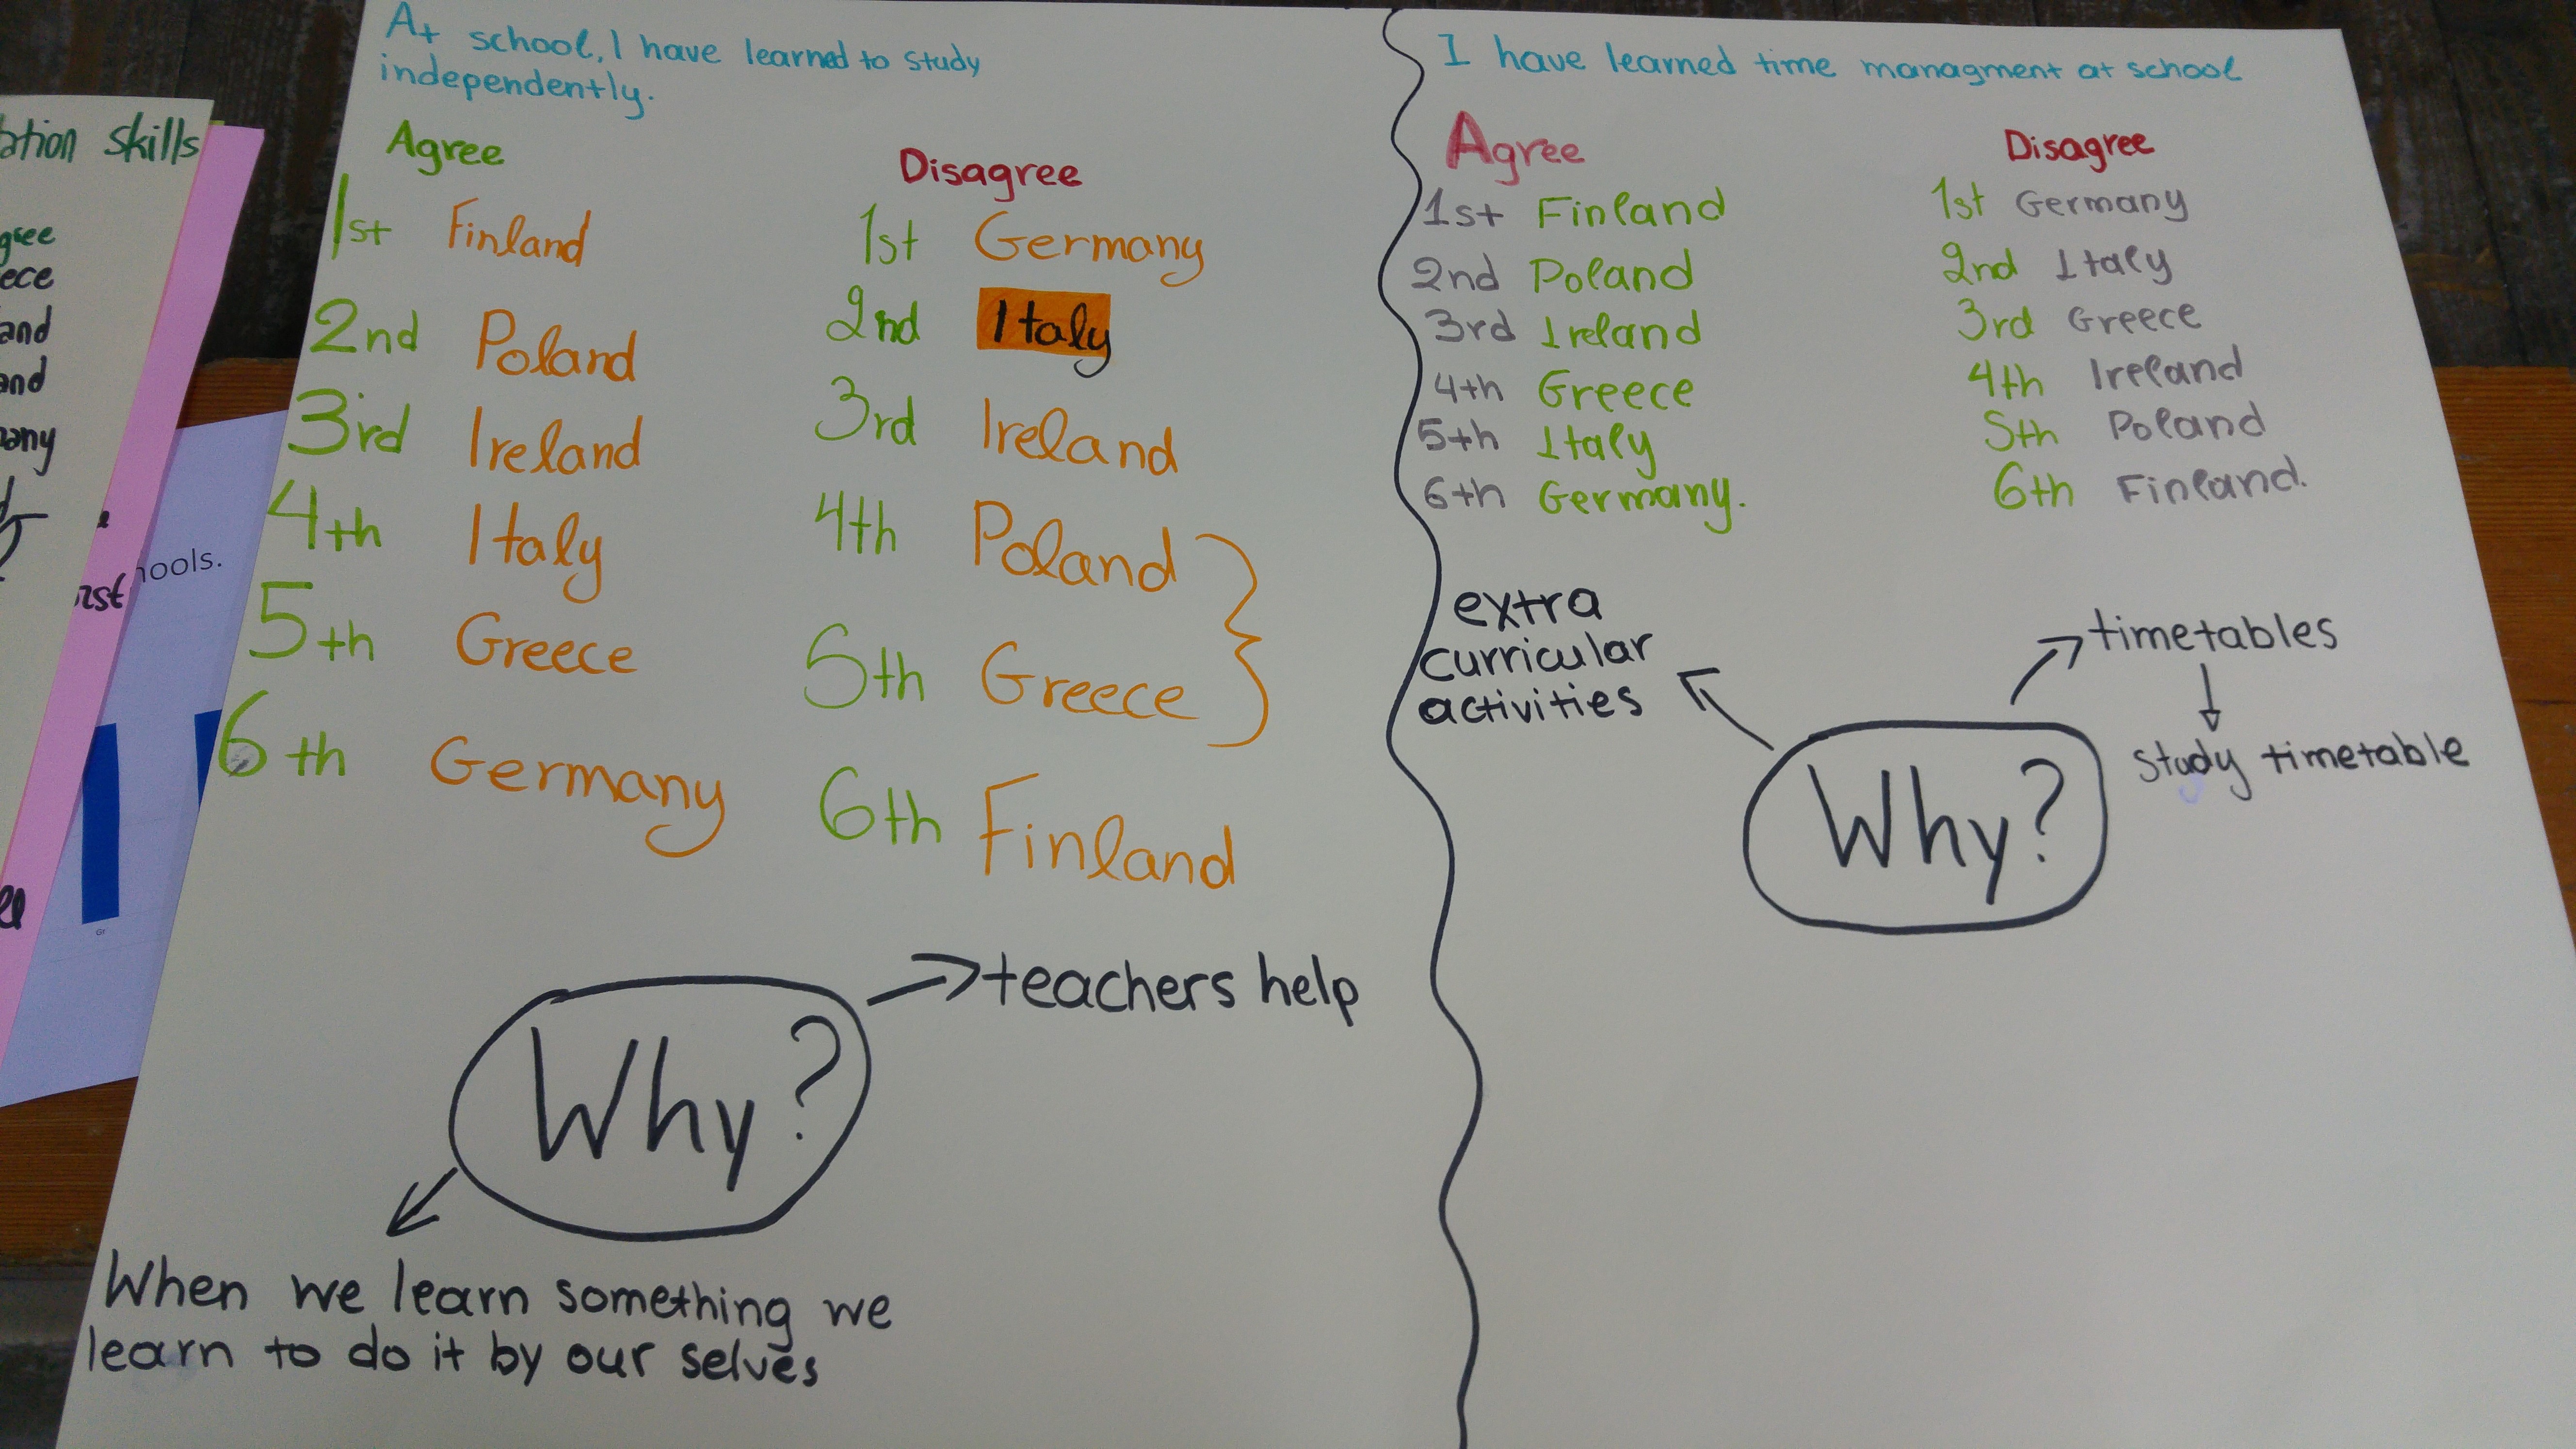 At school, I have learned to study
independently.
Agree
1st Finland
2nd Poland
3ird Ireland
4th Italy
5th Greece
6th Germany
Disagree
1st Germany
2nd Italy
3rd Ireland
4th Poland
5th Greece
6th Finland
Why?
teachers help
When we learn something we
learn to do it by our selves
I have learned time managment at school
Agree
1st Finland
2nd Poland
3rd Ireland
4th Greece
5th Italy
6th Germany.
Disagree
1st Germany
2nd Italy
3rd Greece
4th Ireland
5th Poland
6th Finland.
extra
curricular
activities
Why?
timetables
study timetable
skills